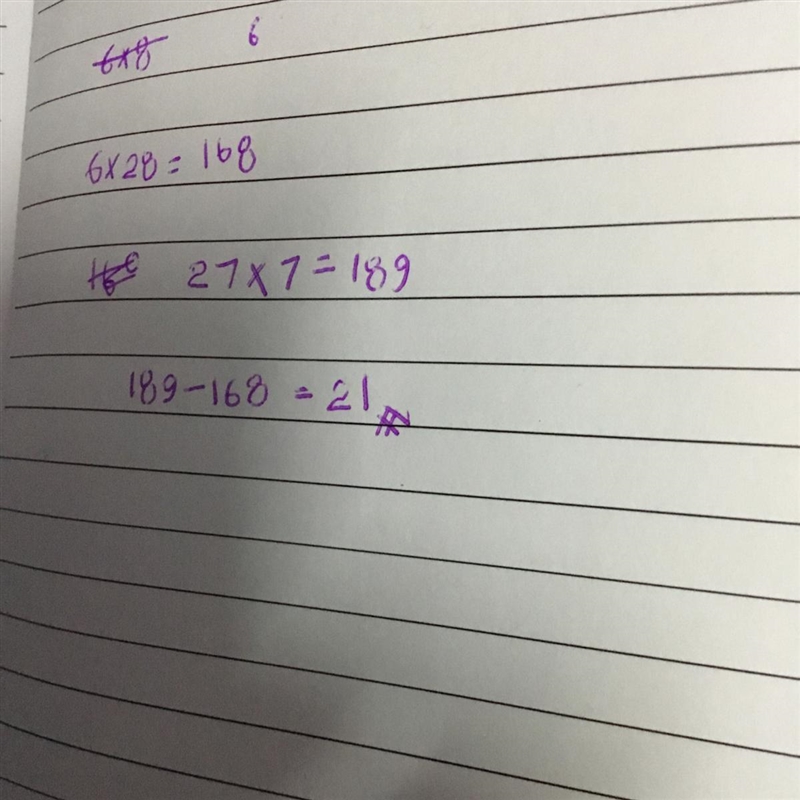 6×8 6
6×28 = 168
27×7 = 189
189-168 = 21